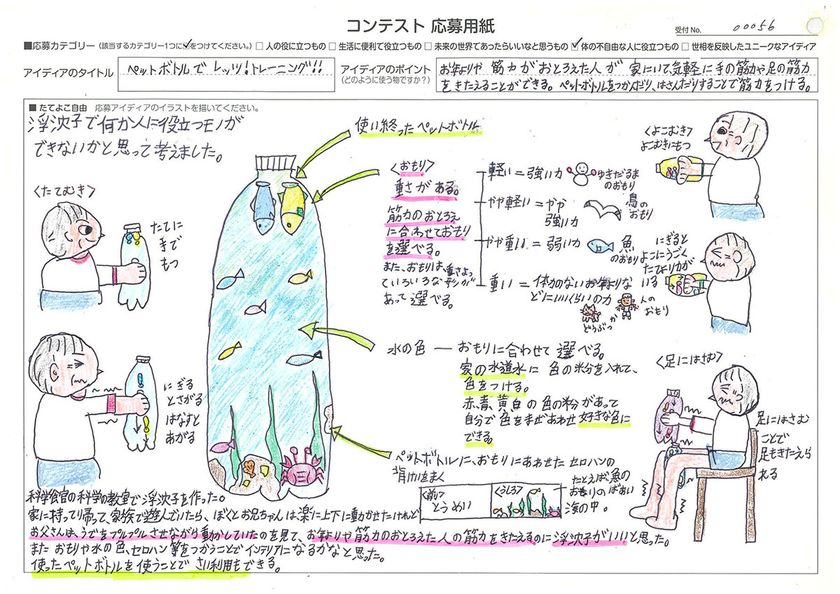 コンテスト 応募用紙
受付No. 00056
■応募カテゴリー(該当するカテゴリー1つに✓をつけてください。) □人の役に立つもの □生活に便利で役立つもの □未来の世界であったらいいなと思うもの ☑体の不自由な人に役立つもの □世相を反映したユニークなアイディア
アイディアのタイトル
ペットボトルでレッツ!トレーニング!!
アイディアのポイント
(どのように使う物ですか?)
お年よりや 筋力がおとろえた人が 家にいて気軽に手の筋力や足の筋力
をきたえることができる。ペットボトルをつかんだり、はさんだりすることで筋力をつける。
■たてよこ自由 応募アイディアのイラストを描いてください。
浮沈子で何か人に役立つモノが
できないかと思って考えました。
使い終ったペットボトル
<たてむき>
たてに
もつ
にぎる
とさがる
はなすと
あがる
<おもり>
重さがある。
筋力のおとろえ
に合わせておもり
を選べる。
また、おもりは、重さによっ
ていろいろな形が
あって選べる。
軽い=強い力
ゆきだるま
のおもり
やや軽い=やや
強い力
鳥の
おもり
やや重い=弱い力
魚
のおもり
重い=体力のないお年よりな
どにいいくらいの力
どうぶつ
か
人の
おもり
<よこむき>
よこむきにもつ
にぎると
よこにうごく
たてより力が
いる
水の色 ― おもりに合わせて 選べる。
家の水道水に 色の粉を入れて、
色をつける。
赤、青、黄、白の色の粉があって
自分で色をまぜあわせ 好きな色に
できる。
ペットボトルに、おもりにあわせた セロハンの
背景をまく
<前>
とうめい
<うしろ>
たとえば魚の
おもりのばあい
海の中。
<足にはさむ>
足にはさむ
ことで
足もきたえら
れる
科学館の科学の教室で浮沈子を作った。
家に持って帰って、家族で遊んでいたら、ぼくとお兄ちゃんは、楽に上下に動かせたけれど
お父さんは、うでをプルプルさせながら動かしていたのを見て、お年よりや筋力のおとろえた人の筋力をきたえるのに浮沈子がいいと思った。
また おもりや水の色、セロハン等をつかうことでインテリアになるかなと思った。
使ったペットボトルを使うことで さい利用もできる。